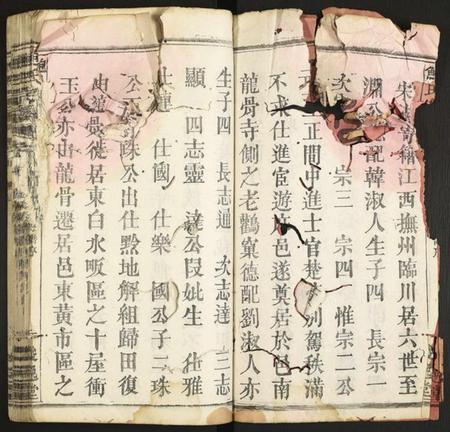 宋 籍江西撫州臨川居六世至
淵公 配韓淑人生子四 長宗一
次宗 宗三 宗四 惟宗二公
正間中進士官楚 別駕秩滿
不求仕進宦遊 邑遂奠居於邑南
龍骨寺側之老鸛窠德配劉淑人亦
生子四 長志通 次志達 三志
顯 四志靈 達公段妣生 仕雅
仕 仕國 仕樂 國公子二珠
公 珠公出仕黔地解組歸田復
由 徙居東白水畈區之十屋衝
玉公亦由龍骨遷居邑東黃市區之